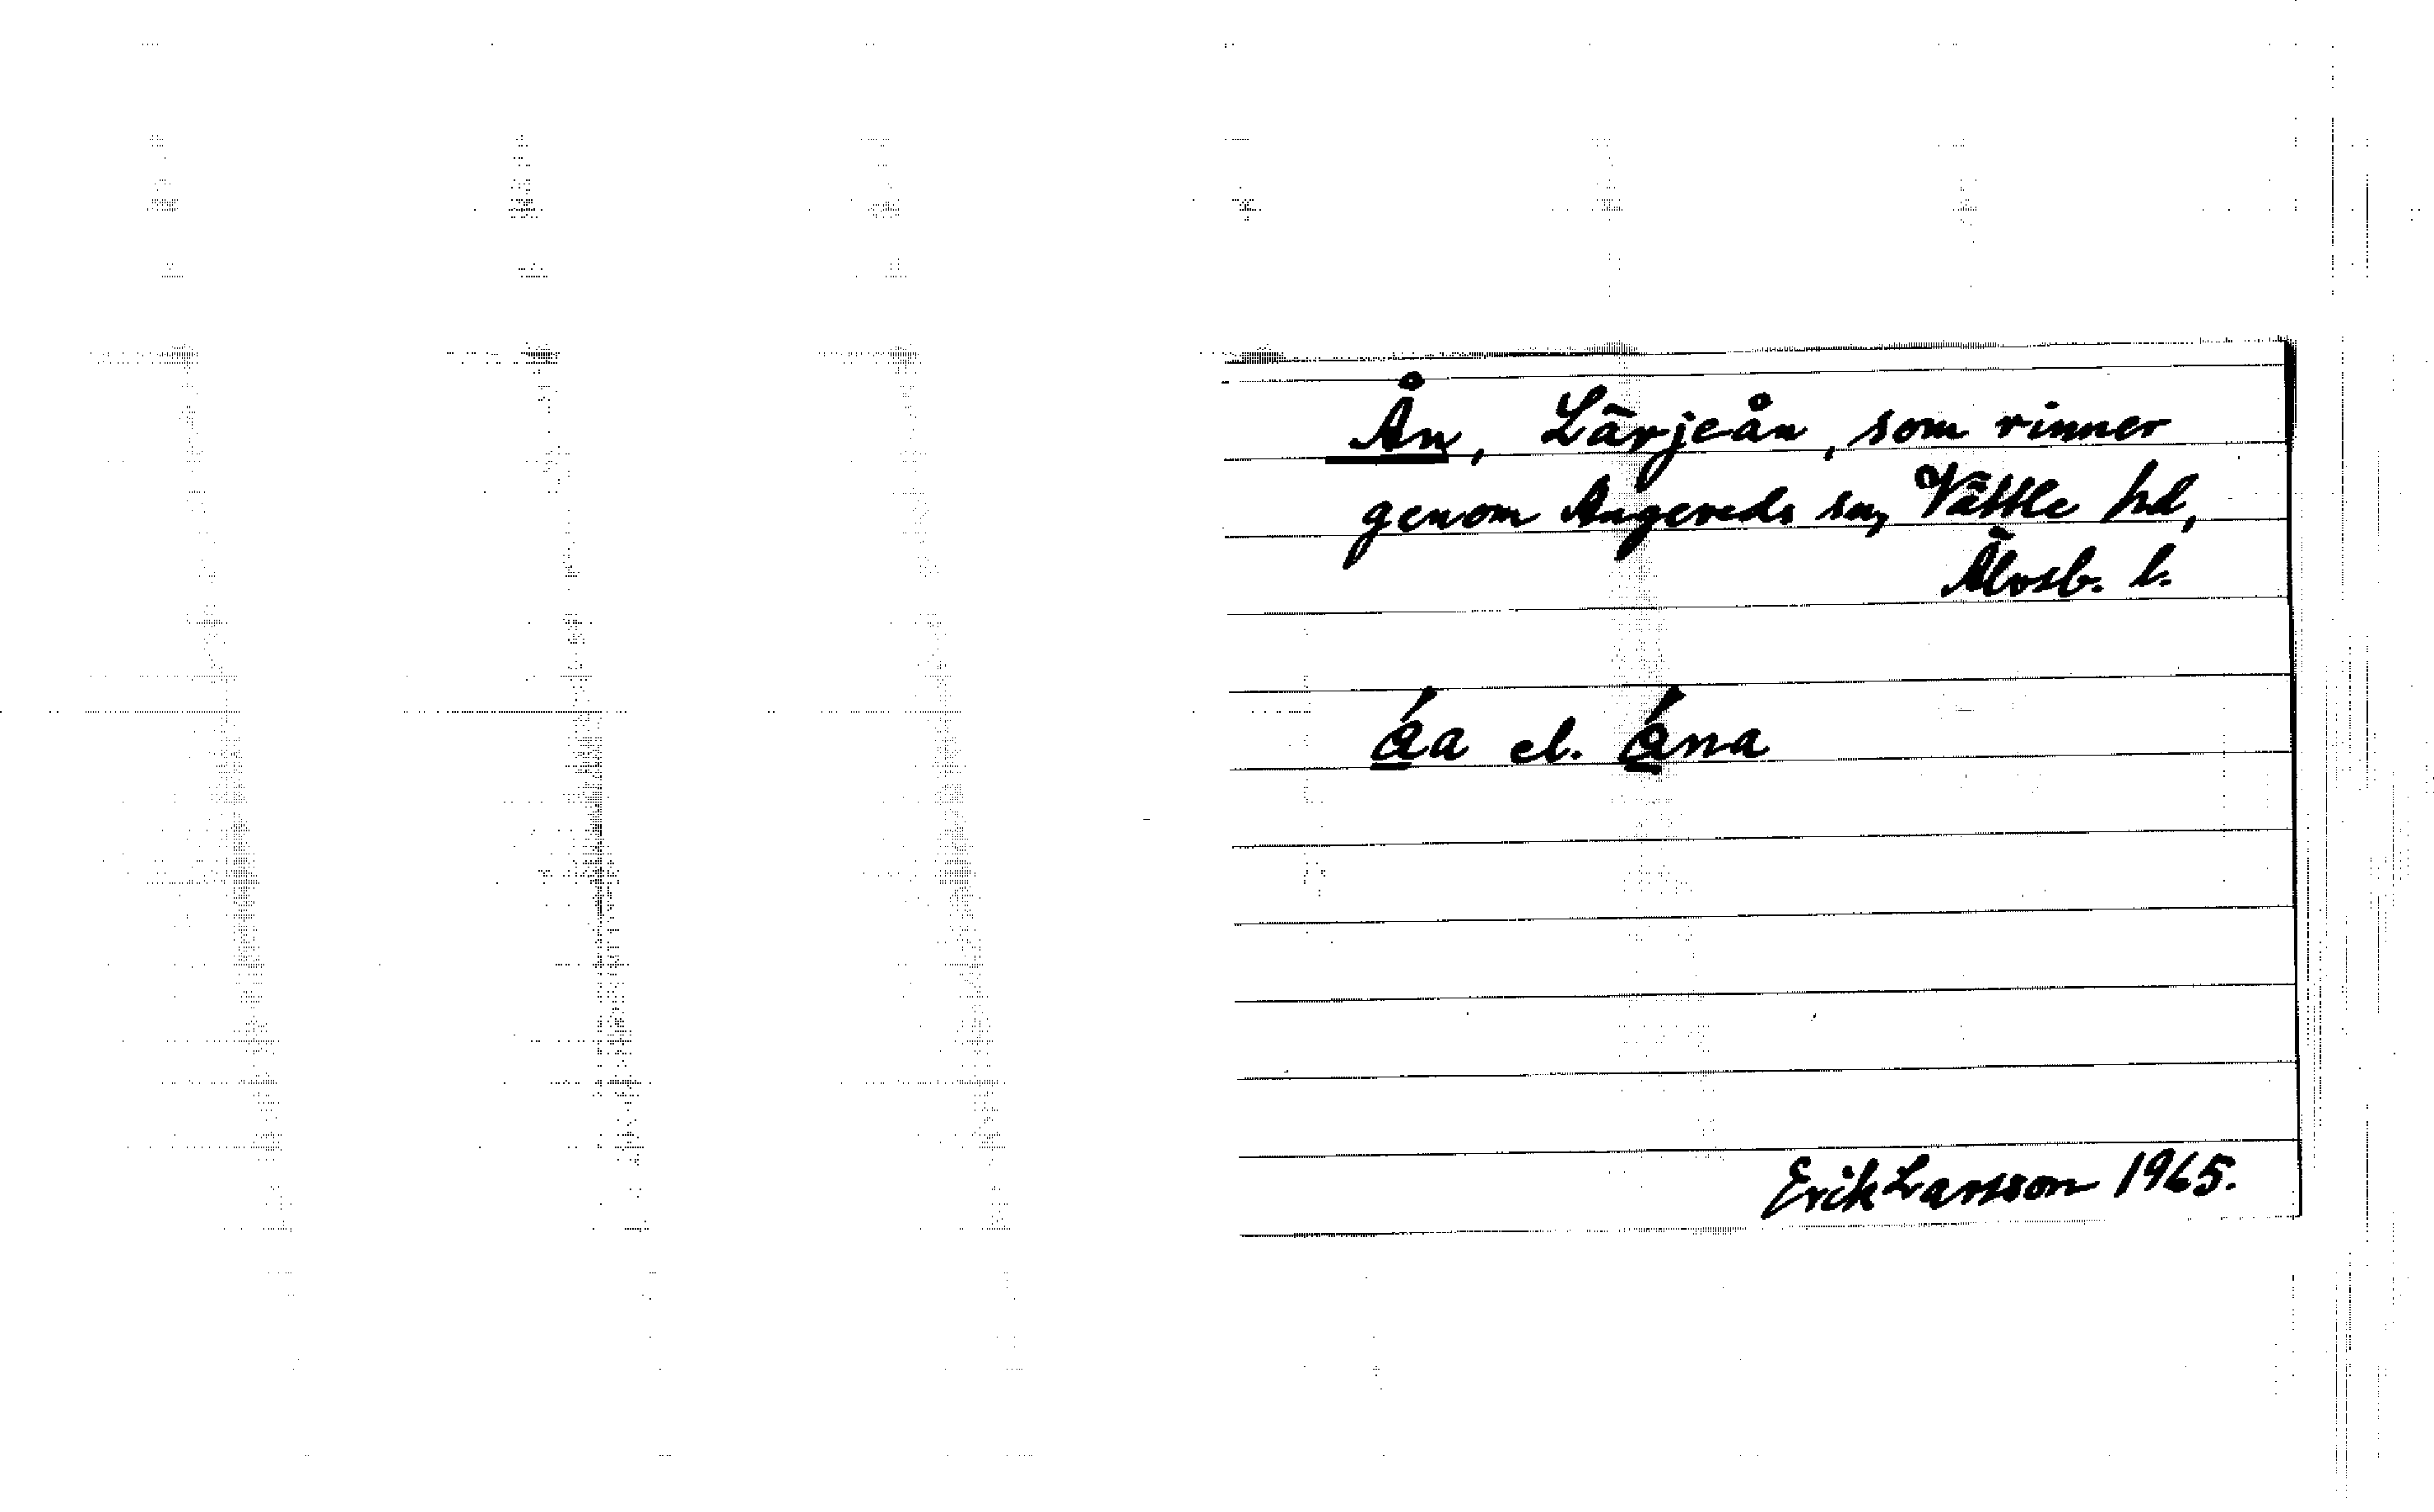 Ån, Lärjeån, som rinner
genom Angereds sn, Vättle hd,
Älvsb. l.
ǻa el. ǻna
Erik Larsson 1965.